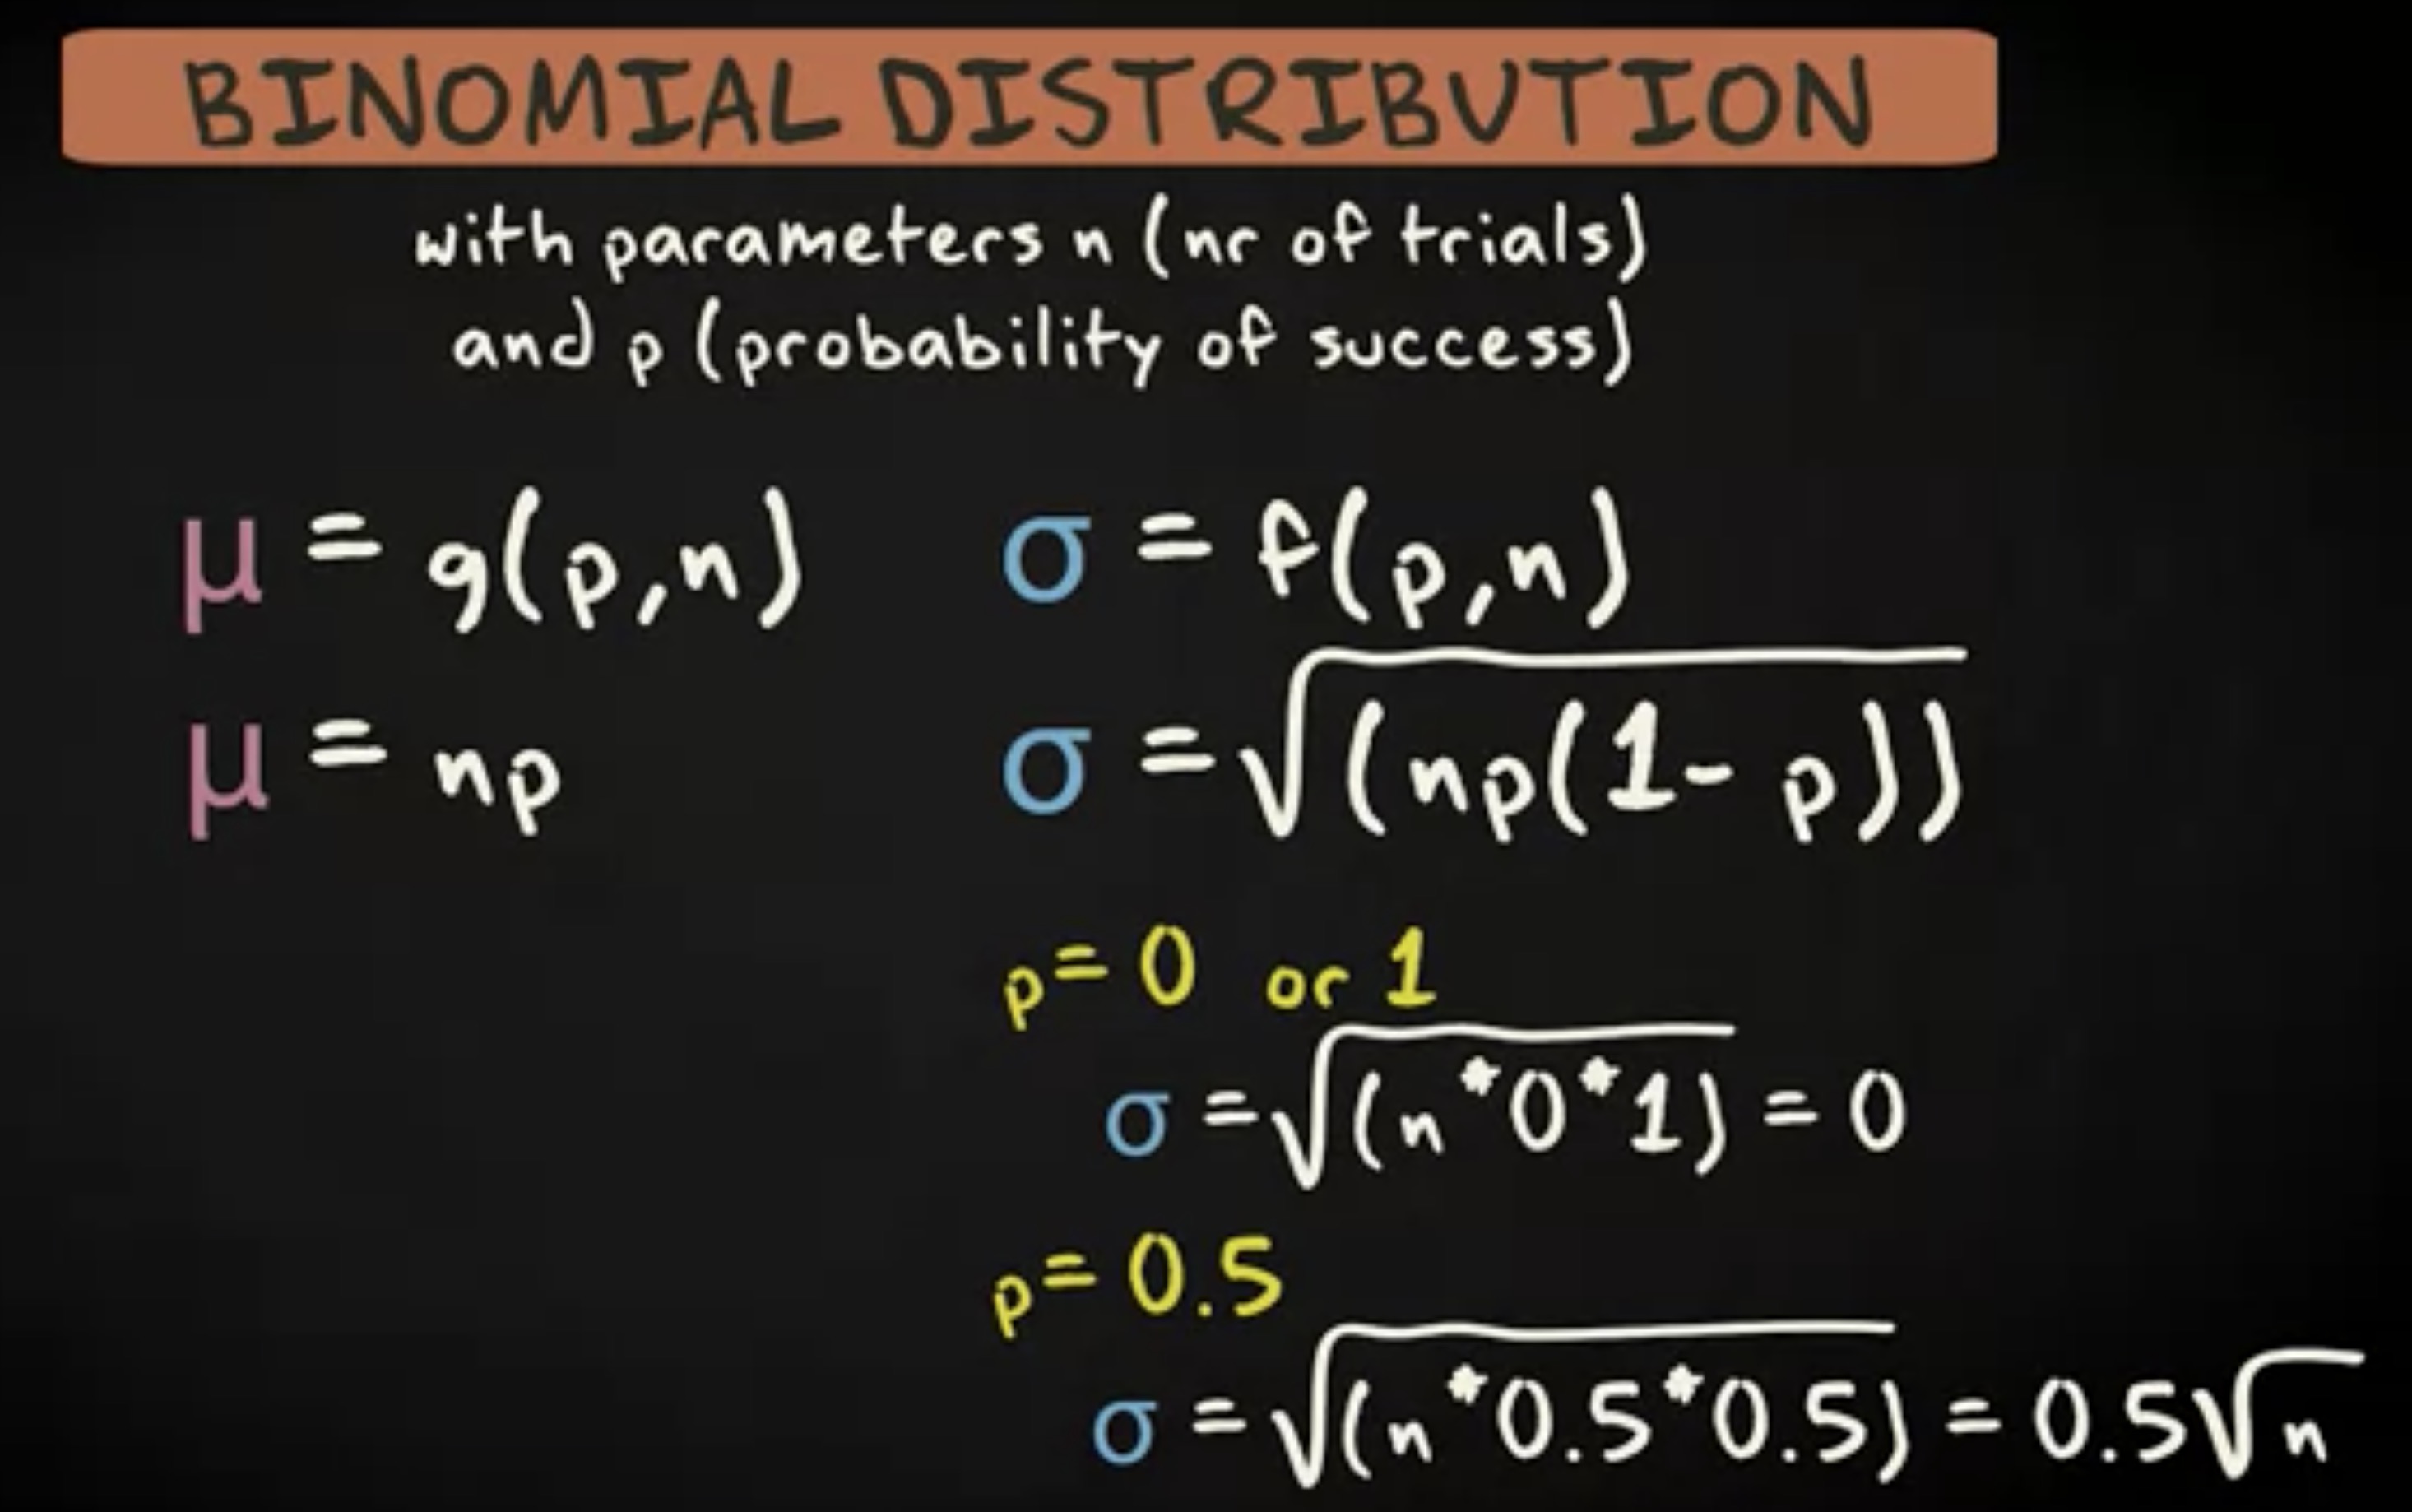 BINOMIAL DISTRIBUTION
with parameters n (nr of trials)
and p (probability of success)
μ = g(p,n)
σ = f(p,n)
μ = np
σ = √(np(1- p))
p= 0 or 1
σ = √(n*0*1) = 0
p= 0.5
σ = √(n*0.5*0.5) = 0.5√n